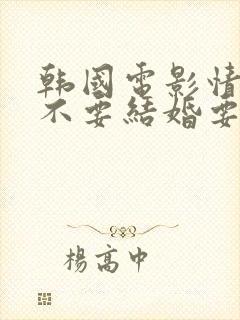 韩國電影情
不要結婚要
楊高中